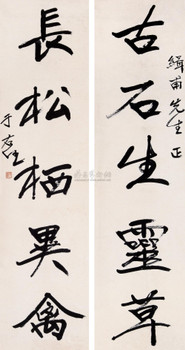 古石生靈草
緝甫先生正
長松栖異禽
于右任